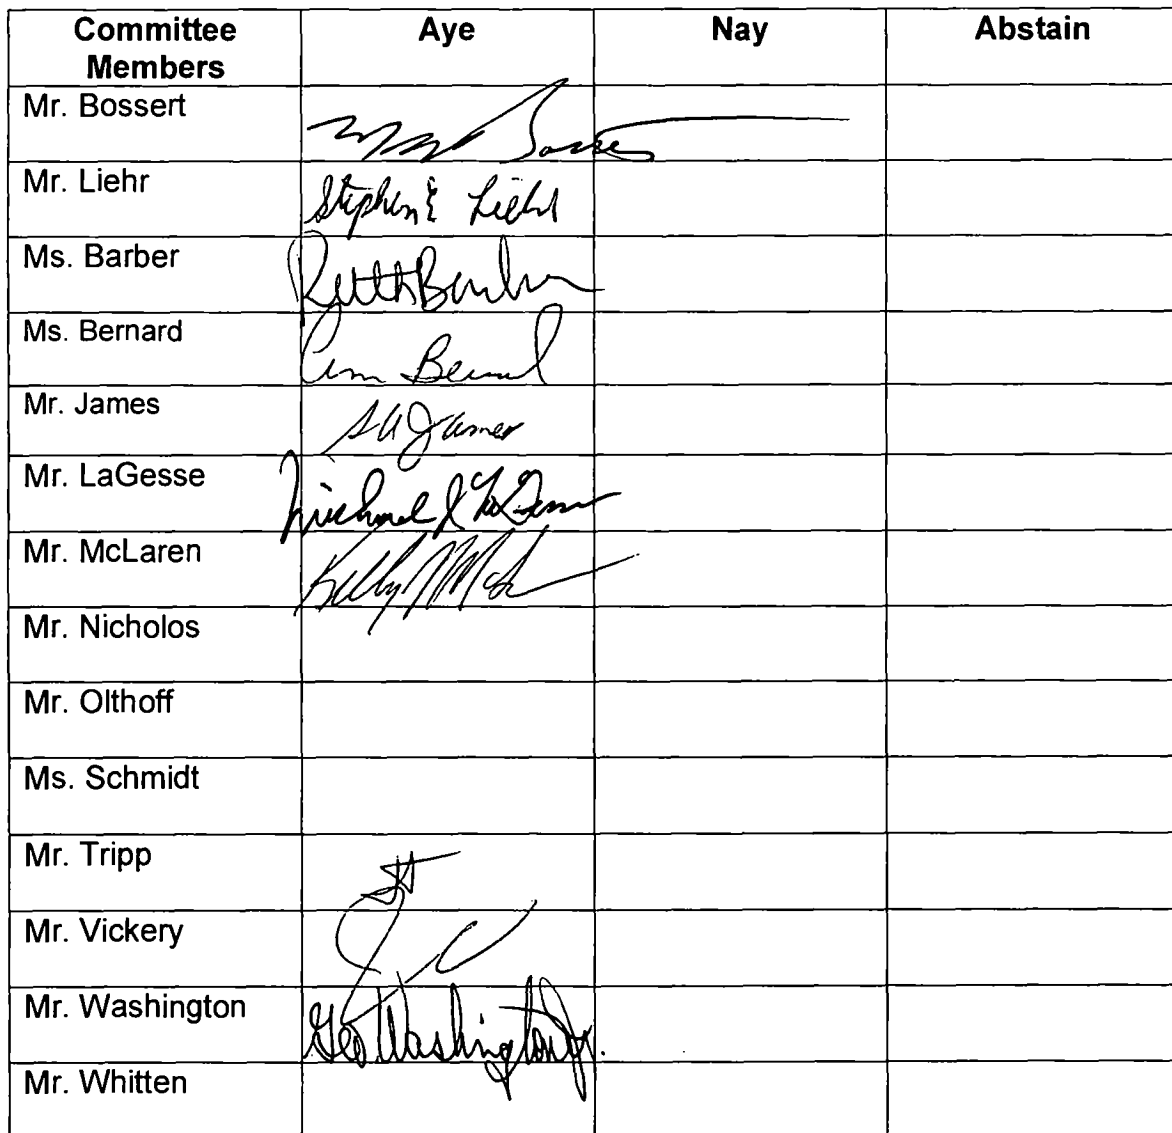 Committee Members Aye Nay Abstain
Mr. Bossert
Mr. Liehr Stephen E Liehr
Ms. Barber Ruth Barber
Ms. Bernard Ann Bernard
Mr. James SA James
Mr. LaGesse Michael J LaGesse
Mr. McLaren
Mr. Nicholos
Mr. Olthoff
Ms. Schmidt
Mr. Tripp
Mr. Vickery
Mr. Washington Geo Washington Jr.
Mr. Whitten